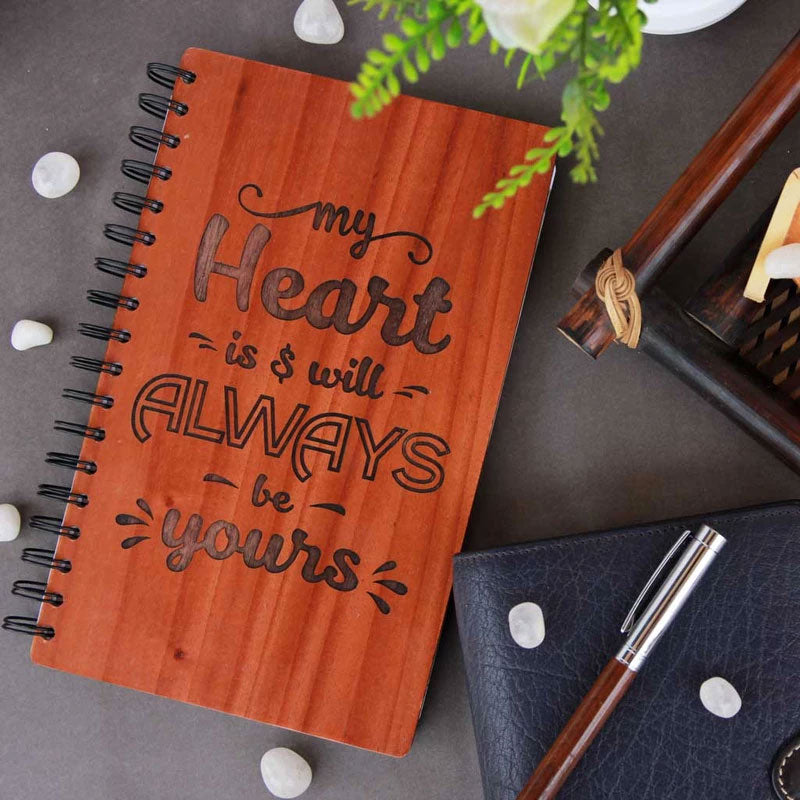 my
Heart
is $ will
ALWAYS
be
yours